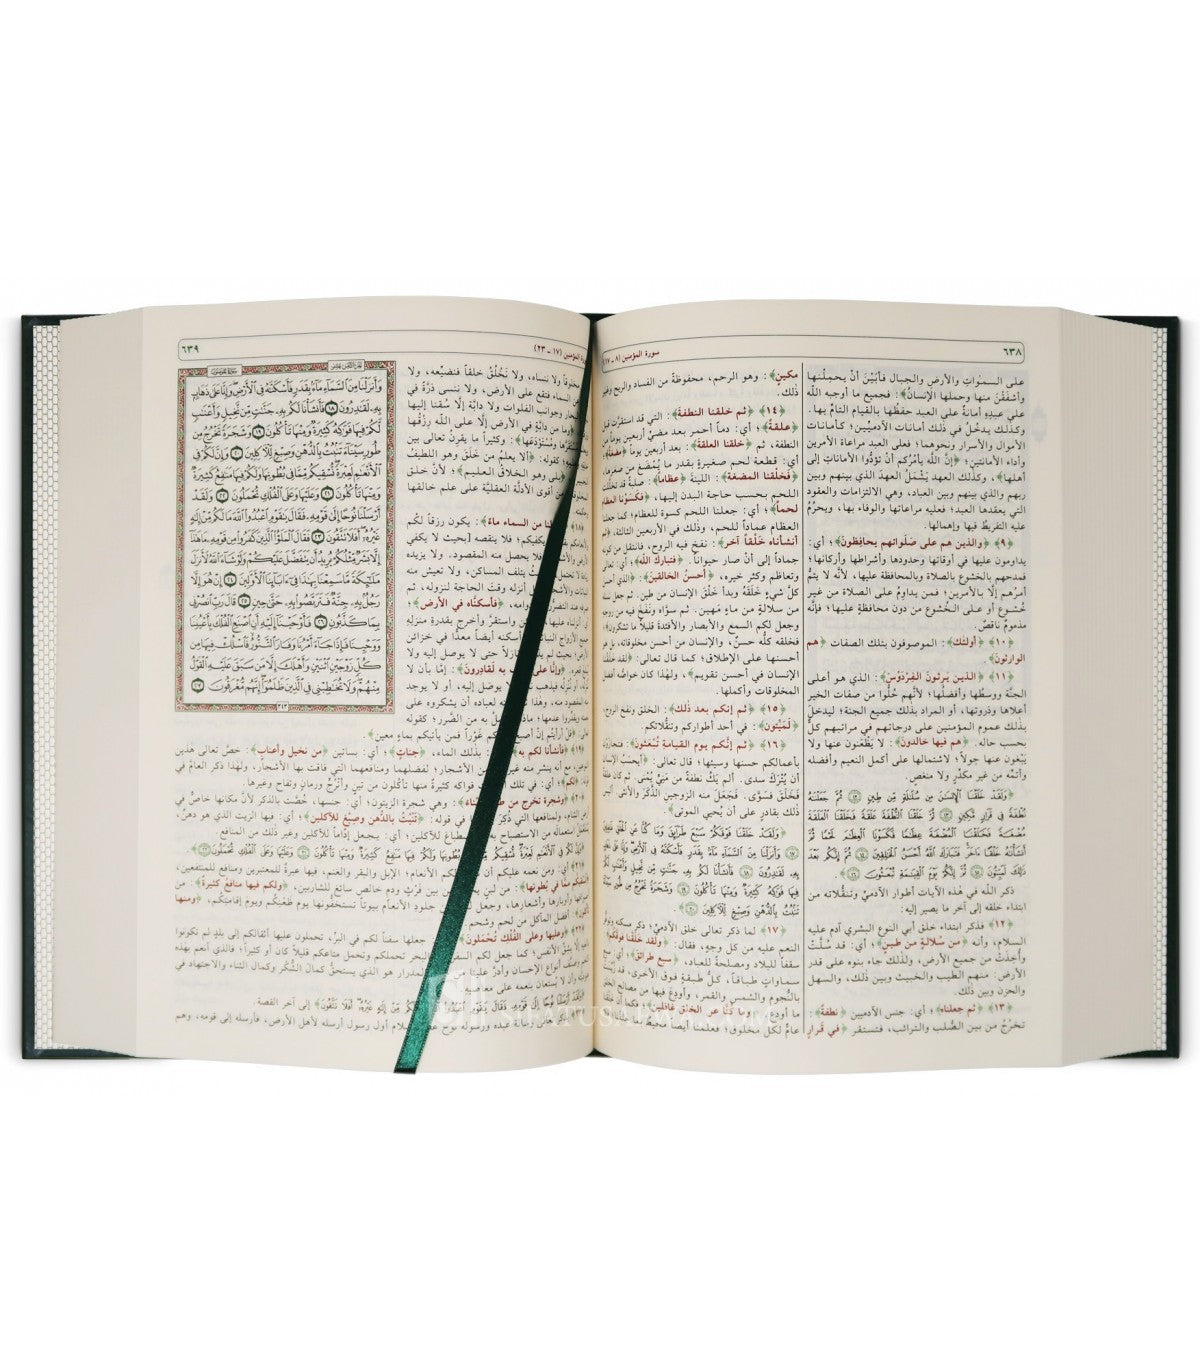 ٦٣٨
سورة المؤمنين (٨ - ١٧)
على السمٰوات والأرض والجبال فأبَيْنَ أنْ يحمِلْنها
وأشفَقْنَ منها وحملها الإنسان﴾: فجميع ما أوجبه الله
على عبدِهِ أمانةٌ على العبد حفظُها بالقيام التامِّ بها.
وكذٰلك يدخُلُ في ذٰلك أمانات الآدميِّين؛ كأمانات
الأموال والأسرار ونحوهما؛ فعلى العبد مراعاة الأمرين
وأداء الأمانتين؛ ﴿إنَّ الله يأمُرُكم أنْ تؤدُّوا الأماناتِ إلى
أهلها﴾، وكذٰلك العهد يَشْمَلُ العهدَ الذي بينهم وبين
ربهم والذي بينهم وبين العباد، وهي الالتزامات والعقود
التي يعقدها العبد؛ فعليه مراعاتُها والوفاء بها، ويحرُمُ
عليه التفريطُ فيها وإهمالها.
﴿٩﴾ ﴿والذين هم على صَلَواتهم يحافِظونَ﴾؛ أي:
يداومون عليها في أوقاتها وحدودها وأشراطها وأركانها؛
فمدحهم بالخشوع بالصلاة وبالمحافظة عليها، لأنَّه لا يتمُّ
أمرُهم إلَّا بالأمرين؛ فمن يداوِمُ على الصلاة من غير
خُشوع أو على الخُشوع من دون محافظةٍ عليها؛ فإنَّه
مذمومٌ ناقصٌ.
﴿١٠﴾ ﴿أولٰئك﴾: الموصوفون بتلك الصفات ﴿هم
الوارثون﴾
﴿١١﴾ ﴿الذين يَرِثونَ الفِرْدَوْسَ﴾: الذي هو أعلى
الجنَّة ووسطُها وأفضلُها؛ لأنَّهم حُلُّوا من صفات الخير
أعلاها وذروتها، أو المراد بذٰلك جميع الجنة؛ ليدخلَ
بذٰلك عموم المؤمنين على درجاتهم في مراتبهم كلٌّ
بحسب حاله. ﴿هم فيها خالدونَ﴾: لا يَظْعَنون عنها ولا
يَبْغون عنها حِوَلاً؛ لاشتمالها على أكمل النعيم وأفضله
وأتمِّه من غير مكدِّرٍ ولا منغصٍ.
﴿وَلَقَدْ خَلَقْنَا ٱلْإِنسَٰنَ مِن سُلَٰلَةٍ مِّن طِينٍ ۝١٢ ثُمَّ جَعَلْنَٰهُ
نُطْفَةً فِي قَرَارٍ مَّكِينٍ ۝١٣ ثُمَّ خَلَقْنَا ٱلنُّطْفَةَ عَلَقَةً فَخَلَقْنَا ٱلْعَلَقَةَ
مُضْغَةً فَخَلَقْنَا ٱلْمُضْغَةَ عِظَٰمًا فَكَسَوْنَا ٱلْعِظَٰمَ لَحْمًا ثُمَّ
أَنشَأْنَٰهُ خَلْقًا ءَاخَرَ فَتَبَارَكَ ٱللَّهُ أَحْسَنُ ٱلْخَٰلِقِينَ ۝١٤ ثُمَّ إِنَّكُم بَعْدَ
ذَٰلِكَ لَمَيِّتُونَ ۝١٥ ثُمَّ إِنَّكُمْ يَوْمَ ٱلْقِيَٰمَةِ تُبْعَثُونَ ۝١٦﴾
ذكر الله في هٰذه الآيات أطوار الآدميِّ وتنقُّلاته من
ابتداء خلقه إلى آخر ما يصير إليه:
﴿١٢﴾ فذكر ابتداء خلق أبي النوع البشري آدم عليه
السلام، وأنه ﴿من سُلالةٍ من طينٍ﴾؛ أي: قد سُلَّتْ
وأخِذَتْ من جميع الأرض، ولذٰلك جاء بنوه على قدر
الأرض: منهم الطيب والخبيث وبين ذٰلك، والسهل
والحزن وبين ذٰلك.
﴿١٣﴾ ﴿ثم جعلناه﴾؛ أي: جنس الآدميين ﴿نطفةً﴾:
تخرُجُ من بين الصُّلب والترائب، فتستقر ﴿في قرارٍ
مكينٍ﴾: وهو الرحم، محفوظة من الفساد والريح وغير
ذٰلك.
﴿١٤﴾ ﴿ثم خلقنا النطفةَ﴾: التي قد استقرَّت قبلُ
﴿علقةً﴾؛ أي: دماً أحمر بعد مضيِّ أربعين يوماً من
النطفة، ثم ﴿خلقنا العلقةَ﴾: بعد أربعين يوماً ﴿مضغةً﴾؛
أي: قطعة لحم صغيرةٍ بقدر ما يُمْضَغ من صغرها،
﴿فخلَقْنا المضغة﴾: اللينةَ ﴿عظاماً﴾: صلبةً قد تخلَّلت
اللحم بحسب حاجة البدن إليها، ﴿فكَسَوْنا العظامَ
لحماً﴾؛ أي: جعلنا اللحم كسوة للعظام؛ كما جعلنا
العظام عماداً للحم، وذٰلك في الأربعين الثالثة، ﴿ثم
أنشأناه خَلْقاً آخر﴾: نفخ فيه الروح، فانتقل من كونه
جماداً إلى أنْ صار حيواناً. ﴿فتبارَكَ الله﴾؛ أي: تعالى
وتعاظم وكثر خيره، ﴿أحسنُ الخالقينَ﴾: الذي أحسن
كلَّ شيءٍ خَلَقَهُ وبدأ خَلْقَ الإنسان من طين، ثم جعل نسله
من سلالةٍ من ماءٍ مَهين، ثم سوَّاه ونَفَخَ فيه من روحه،
وجعل لكم السمع والأبصار والأفئدة قليلاً ما تشكرون؛
فخلقه كلُّه حسنٌ، والإنسان من أحسن مخلوقاته، بل هو
أحسنها على الإطلاق؛ كما قال تعالى: ﴿لقد خلقنا
الإنسان في أحسن تقويم﴾، ولهٰذا كان خواصُّه أفضل
المخلوقات وأكملها.
﴿١٥﴾ ﴿ثم إنكم بعد ذٰلك﴾: الخلق ونفخ الروح،
﴿لميِّتونَ﴾: في أحد أطواركم وتنقُّلاتكم.
﴿١٦﴾ ﴿ثم إنَّكم يوم القيامةِ تُبْعَثونَ﴾: فتجازون
بأعمالكم حسنها وسيئها؛ قال تعالى: ﴿أيحسبُ الإنسان
أن يُتْرَكَ سدى. ألم يَكُ نطفةً من منيٍّ يُمْنى. ثم كان علقةً
فخَلَقَ فسَوَّى. فَجَعَلَ منه الزوجينِ الذَّكَرَ والأنثى. أليس
ذٰلك بقادرٍ على أن يُحيي الموتى﴾.
﴿وَلَقَدْ خَلَقْنَا فَوْقَكُمْ سَبْعَ طَرَآئِقَ وَمَا كُنَّا عَنِ ٱلْخَلْقِ غَٰفِلِينَ
۝١٧ وَأَنزَلْنَا مِنَ ٱلسَّمَآءِ مَآءً بِقَدَرٍ فَأَسْكَنَّٰهُ فِي ٱلْأَرْضِ وَإِنَّا عَلَىٰ ذَهَابٍ بِهِۦ
لَقَٰدِرُونَ ۝١٨ فَأَنشَأْنَا لَكُم بِهِۦ جَنَّٰتٍ مِّن نَّخِيلٍ وَأَعْنَٰبٍ لَّكُمْ
فِيهَا فَوَٰكِهُ كَثِيرَةٌ وَمِنْهَا تَأْكُلُونَ ۝١٩ وَشَجَرَةً تَخْرُجُ مِن طُورِ سَيْنَآءَ
تَنۢبُتُ بِٱلدُّهْنِ وَصِبْغٍ لِّلْآكِلِينَ ۝٢٠﴾.
﴿١٧﴾ لما ذكر تعالى خلق الآدميِّ؛ ذكر مسكنه وتوفُّر
النعم عليه من كل وجهٍ، فقال: ﴿ولقد خَلَقْنا فوقَكم﴾:
سقفاً للبلاد ومصلحةً للعباد، ﴿سبع طرائقَ﴾؛ أي: سبع
سماواتٍ طباقاً، كلُّ طبقة فوق الأخرى، قد زُيِّنَتْ
بالنُّجوم والشمس والقمر، وأودِعَ فيها من مصالح الخلق
ما أودع، ﴿وما كنَّا عن الخلق غافلينَ﴾: فكما أنَّ خَلْقَنا
عامٌّ لكل مخلوق؛ فعلمنا أيضاً محيطٌ
سورة المؤمنين (١٧ - ٢٣)
٦٣٩
مخلوقاً ولا ننساه، ولا نَخْلُقُ خلقاً فنضيِّعه، ولا
عن السماء فتقع على الأرض، ولا ننسى ذرَّةً في
البحار وجوانب الفلوات ولا دابَّة إلَّا سُقنا إليها
﴿وما من دابَّةٍ في الأرض إلَّا على الله رزقُها
مستقرَّها ومُسْتَوْدَعَها﴾: وكثيراً ما يقرِنُ تعالى بين
كقوله: ﴿ألا يعلمُ من خَلَقَ وهو اللطيفُ
﴿بلى وهو الخلَّاق العليم﴾؛ لأنَّ خلق
من أقوى الأدلَّة العقليَّة على علم خالقها
وحكمته.
من السماء ماءً﴾: يكون رزقاً لكُم
يكفيكم؛ فلا ينقصه [بحيث لا يكفي
فلا يحصل منه المقصود، ولا يزيده
يتلف المساكن، ولا تعيش منه
﴿فأسكَنَّاه في الأرض﴾؛
واستقرَّ وأخرج بقدرة منزله
أسكنه أيضاً معدًّا في خزائن
نازلاً حتى لا يوصل إليه ولا
﴿وإنَّا على به لَقادرونَ﴾: إمَّا بأن لا
فيذهب يوصل إليه، أو لا يوجد
المقصود منه، وهٰذا لعباده أن يشكروه على
﴿قل أرأيتُم إنْ أصبح غَوْراً فمن يأتيكم بماءٍ معينٍ﴾.
﴿١٩﴾ ﴿فأنشأنا لكم به﴾؛ أي: بذٰلك الماء، ﴿جناتٍ﴾؛ أي: بساتين ﴿من نخيلٍ وأعنابٍ﴾: خصَّ تعالى هٰذين
النوعين، مع أنه ينشر منه غيرهما من الأشجار؛ لفضلهما ومنافعهما التي فاقت بها الأشجار، ولهٰذا ذكر العامَّ في
﴿لكم﴾؛ أي: في تلك فواكه كثيرة منها تأكلون من تينٍ وأتْرُجٍّ ورمانٍ وتفاح وغيرها.
﴿٢٠﴾ ﴿وشجرة تخرج من طور سيناءَ﴾: وهي شجرة الزيتون؛ أي: جنسها، خُصَّت بالذكر لأنَّ مكانها خاصٌّ في
في قوله: ﴿تَنْبُتُ بالدُّهن وصِبْغ للآكلين﴾؛ أي: فيها الزيت الذي هو دهنٌ،
يُكْثَرُ استعماله من الاستصباح به واصطباغ للآكلين؛ أي: يجعل إداماً للآكلين، وغير ذٰلك من المنافع.
﴿وَإِنَّ لَكُمْ فِي ٱلْأَنْعَٰمِ لَعِبْرَةً نُّسْقِيكُم مِّمَّا فِي بُطُونِهَا وَلَكُمْ فِيهَا مَنَٰفِعُ كَثِيرَةٌ وَمِنْهَا تَأْكُلُونَ ۝٢١ وَعَلَيْهَا وَعَلَى ٱلْفُلْكِ تُحْمَلُونَ ۝٢٢﴾.
﴿٢١﴾ أي: ومن نعمه عليكم الأنعام؛ الإبل والبقر والغنم، فيها عبرةٌ للمعتبرين ومنافعُ للمنتفعين،
﴿نُسقيكم ممَّا في بُطونها﴾: من لبنٍ يخرج من بين فَرْثٍ ودمٍ خالصٍ سائغ للشاربين، ﴿ولكم فيها منافعُ كثيرةٌ﴾: من
أصوافها وأوبارها وأشعارها، وجعل لكم من جلودِ الأنعام بيوتاً تستخفُّونها يوم ظَعْنِكُم ويوم إقامتِكُم، ﴿ومنها
تأكلون﴾: أفضل المآكل من لحم وشحم.
﴿٢٢﴾ ﴿وعليها وعلى الفُلْكِ تُحْمَلونَ﴾: جعلها سفناً لكم في البرِّ، تحملون عليها أثقالكم إلى بلدٍ لم تكونوا
بالغيه إلَّا بشقِّ الأنفس؛ كما جعل لكم السفن في البحر تحملكم وتحمل متاعكم قليلاً كان أو كثيراً؛ فالذي أنعم بهٰذه
النعم وصنَّف أنواع الإحسان وأدرَّ علينا المدرار هو الذي يستحقُّ كمال الشُّكر وكمال الثناء والاجتهاد في
وأن لا يُستعان بنعمه على معاصيه.
﴿وَلَقَدْ أَرْسَلْنَا نُوحًا إِلَىٰ قَوْمِهِۦ فَقَالَ يَٰقَوْمِ ٱعْبُدُوا۟ مَا لَكُم مِّنْ إِلَٰهٍ غَيْرُهُۥٓ أَفَلَا تَتَّقُونَ﴾ إلى آخر القصة.
رسالة عبده ورسوله نوح السلام أول رسول أرسله لأهل الأرض، فأرسله إلى قومه، وهم
سورة المؤمنون
الجزء الثامن عشر
وَأَنزَلْنَا مِنَ ٱلسَّمَآءِ مَآءً بِقَدَرٍ فَأَسْكَنَّٰهُ فِي ٱلْأَرْضِ وَإِنَّا عَلَىٰ ذَهَابٍۭ
بِهِۦ لَقَٰدِرُونَ ۝١٨ فَأَنشَأْنَا لَكُم بِهِۦ جَنَّٰتٍ مِّن نَّخِيلٍ وَأَعْنَٰبٍ
لَّكُمْ فِيهَا فَوَٰكِهُ كَثِيرَةٌ وَمِنْهَا تَأْكُلُونَ ۝١٩ وَشَجَرَةً تَخْرُجُ مِن
طُورِ سَيْنَآءَ تَنۢبُتُ بِٱلدُّهْنِ وَصِبْغٍ لِّلْآكِلِينَ ۝٢٠ وَإِنَّ لَكُمْ فِي
ٱلْأَنْعَٰمِ لَعِبْرَةً نُّسْقِيكُم مِّمَّا فِي بُطُونِهَا وَلَكُمْ فِيهَا مَنَٰفِعُ كَثِيرَةٌ
وَمِنْهَا تَأْكُلُونَ ۝٢١ وَعَلَيْهَا وَعَلَى ٱلْفُلْكِ تُحْمَلُونَ ۝٢٢ وَلَقَدْ
أَرْسَلْنَا نُوحًا إِلَىٰ قَوْمِهِۦ فَقَالَ يَٰقَوْمِ ٱعْبُدُوا۟ ٱللَّهَ مَا لَكُم مِّنْ إِلَٰهٍ
غَيْرُهُۥٓ أَفَلَا تَتَّقُونَ ۝٢٣ فَقَالَ ٱلْمَلَؤُا۟ ٱلَّذِينَ كَفَرُوا۟ مِن قَوْمِهِۦ مَا هَٰذَآ
إِلَّا بَشَرٌ مِّثْلُكُمْ يُرِيدُ أَن يَتَفَضَّلَ عَلَيْكُمْ وَلَوْ شَآءَ ٱللَّهُ لَأَنزَلَ
مَلَٰٓئِكَةً مَّا سَمِعْنَا بِهَٰذَا فِيٓ ءَابَآئِنَا ٱلْأَوَّلِينَ ۝٢٤ إِنْ هُوَ إِلَّا
رَجُلٌۢ بِهِۦ جِنَّةٌ فَتَرَبَّصُوا۟ بِهِۦ حَتَّىٰ حِينٍ ۝٢٥ قَالَ رَبِّ ٱنصُرْنِي
بِمَا كَذَّبُونِ ۝٢٦ فَأَوْحَيْنَآ إِلَيْهِ أَنِ ٱصْنَعِ ٱلْفُلْكَ بِأَعْيُنِنَا
وَوَحْيِنَا فَإِذَا جَآءَ أَمْرُنَا وَفَارَ ٱلتَّنُّورُ فَٱسْلُكْ فِيهَا مِن
كُلٍّ زَوْجَيْنِ ٱثْنَيْنِ وَأَهْلَكَ إِلَّا مَن سَبَقَ عَلَيْهِ ٱلْقَوْلُ
مِنْهُمْ وَلَا تُخَٰطِبْنِي فِي ٱلَّذِينَ ظَلَمُوٓا۟ إِنَّهُم مُّغْرَقُونَ ۝٢٧
٣٤٣